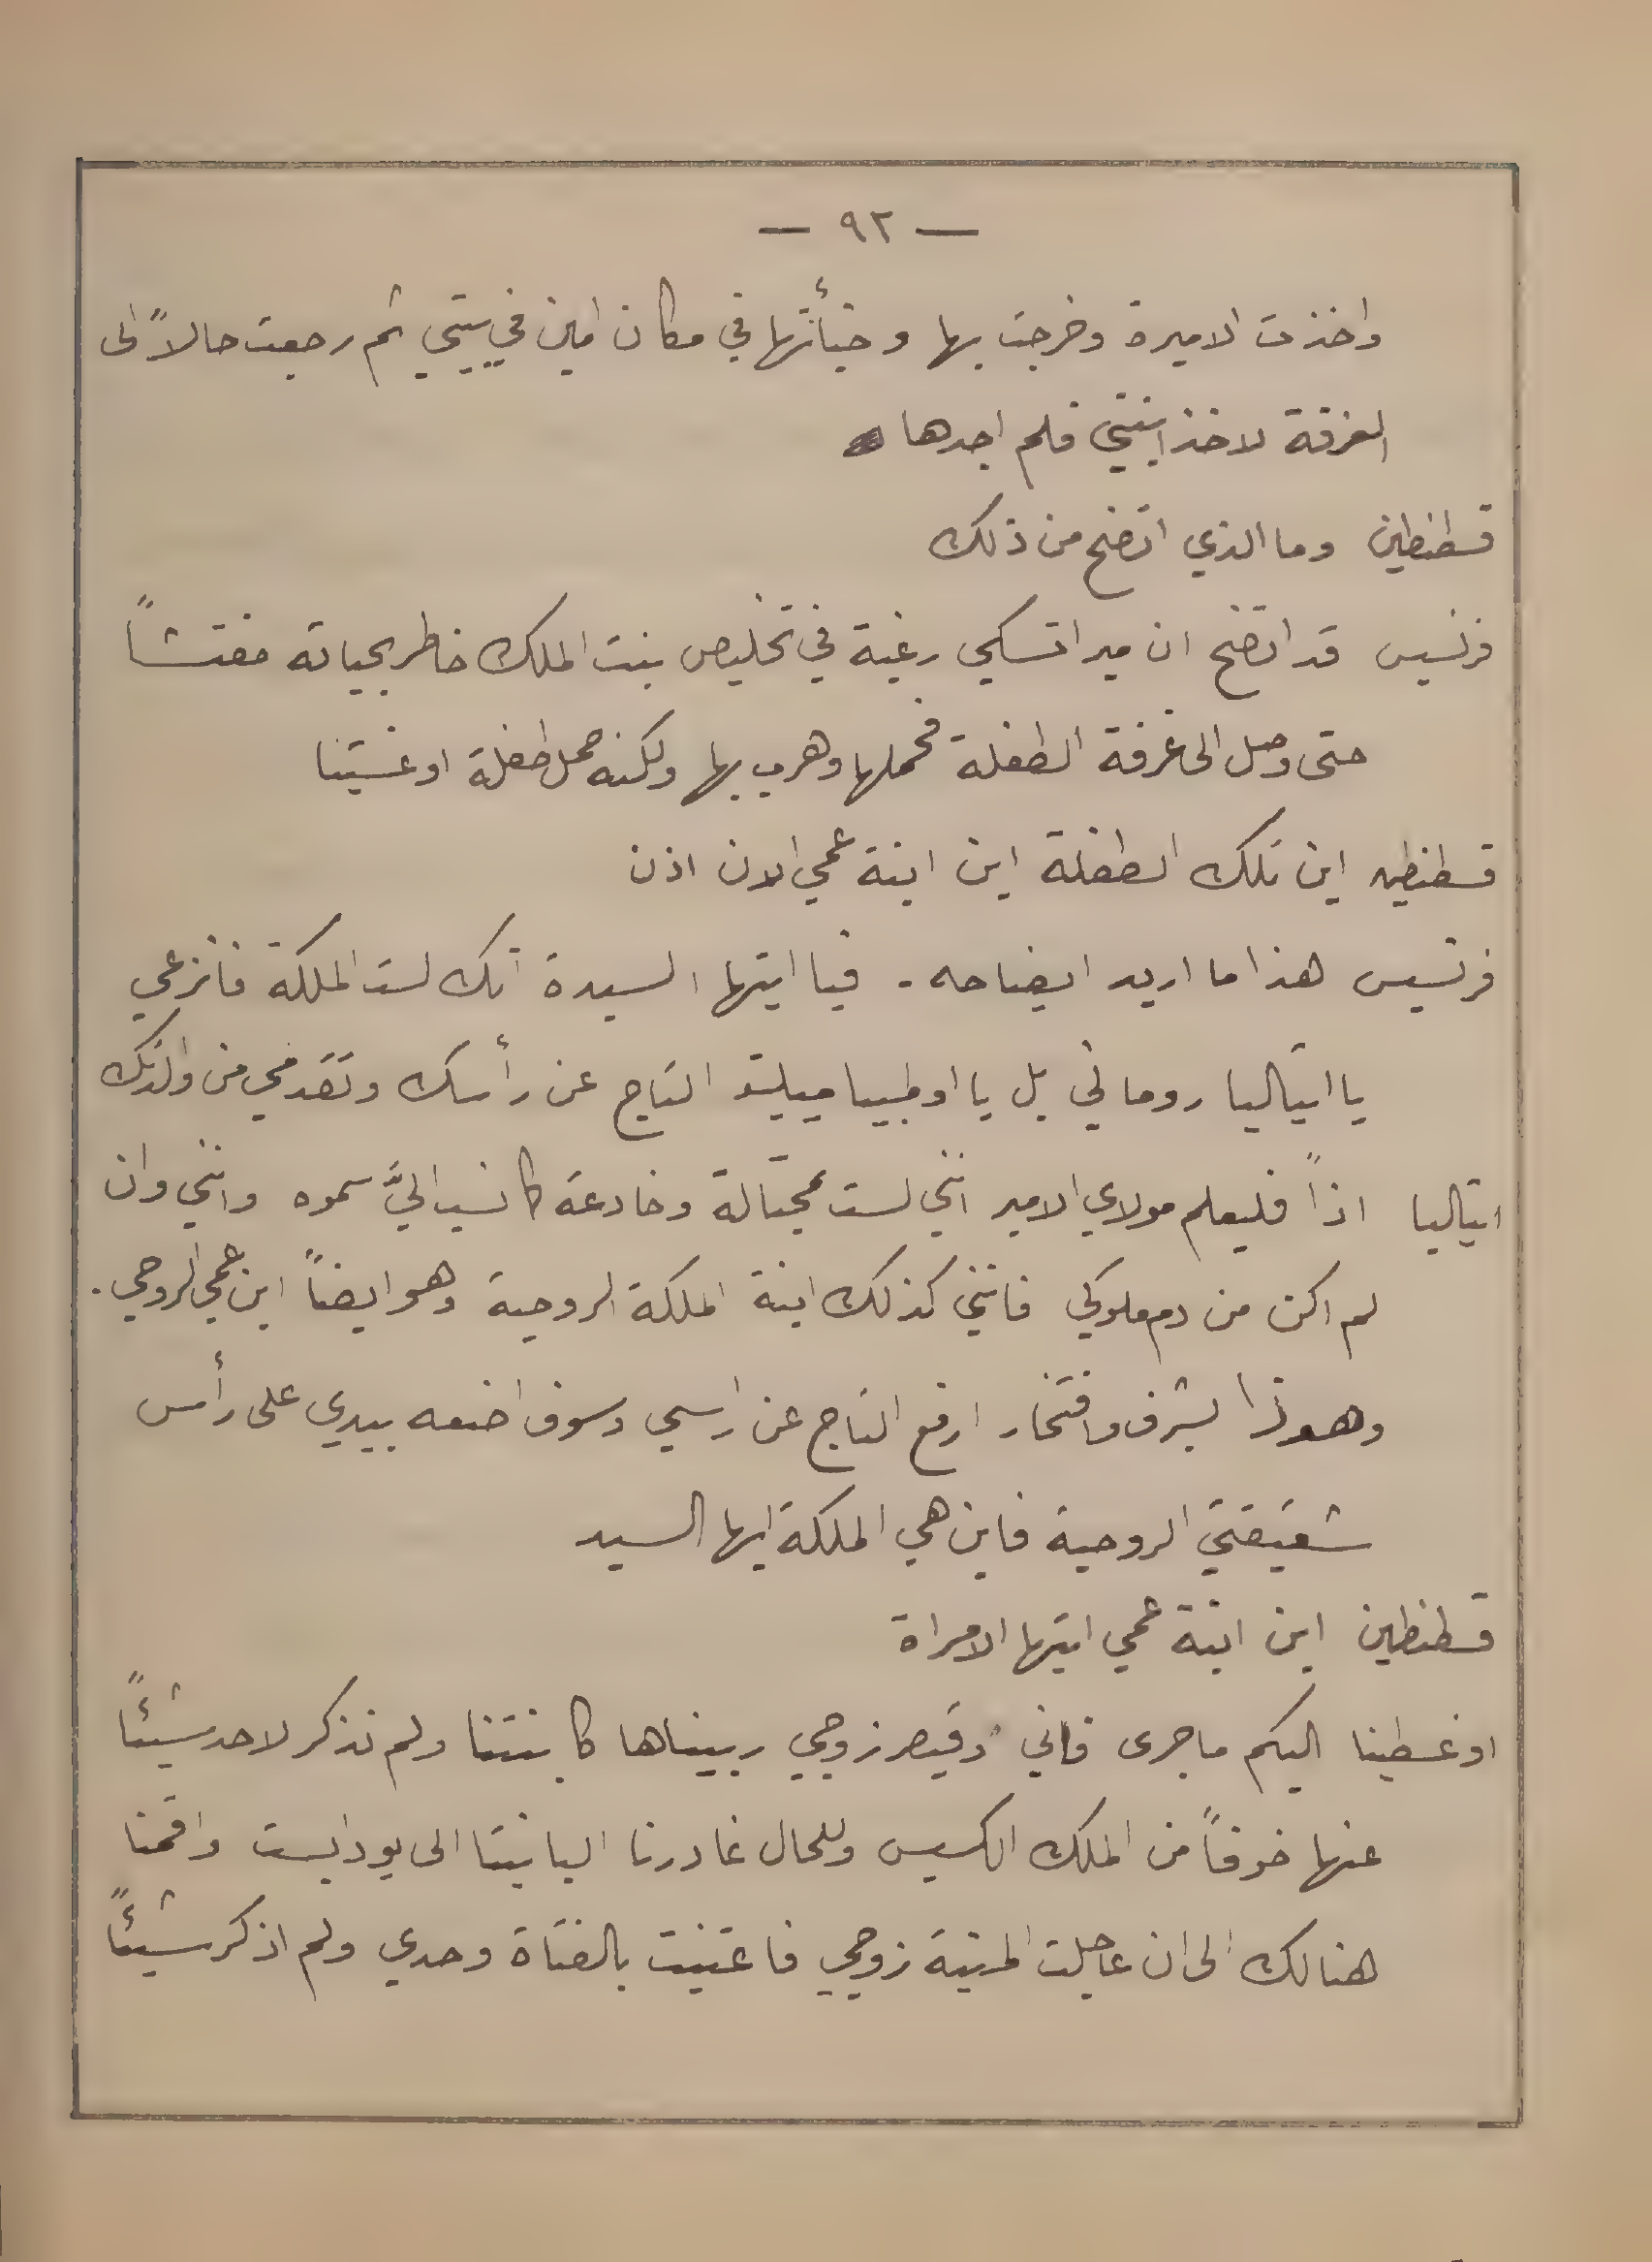 — ٩٢ —
واخذت الاميرة وخرجت بها وخبأتُها في مكان امين في بيتي ثم رجعت حالاً الى
الغرفة لاخذ ابنتي فلم اجدها
قسطنطين وما الذي اتضح من ذلك
فرنسيس قد اتضح ان ميراتسكي رغبة في تخليص بنت الملك خاطر بحياته مفتشاً
حتى وصل الى غرفة الطفلة فحملها وهرب بها ولكنه حمل طفلة اوغستينا
قسطنطين اين تلك الطفلة اين ابنة عمي الان اذن
فرنسيس هذا ما اريد ايضاحه . فيا ايتها السيدة انك لست الملكة فانزعي
يا ايتاليا روماني بل يا اوطبيا ميليتو التاج عن رأسك وتقدمي من والدتك
ايتاليا اذاً فليعلم مولاي الامير انني لست محتالة وخادعة كما نسب اليَّ سموه وانني وان
لم اكن من دم ملوكي فانني كذلك ابنة الملكة الروحية وهو ايضاً ابن عمي الروحي .
وهوذا بشرف وافتخار ارفع التاج عن راسي وسوف اضعه بيدي على رأس
شقيقتي الروحية فاين هي الملكة ايها السيد
قسطنطين اين ابنة عمي ايتها الامراة
اوغسطينا اليكم ما جرى فاني وقيصر زوجي ربيناها كابنتنا ولم نذكر لاحد شيئاً
عنها خوفاً من الملك الكسيس وللحال غادرنا البانيتا الى بودابست واقمنا
هنالك الى ان عاجلت المنية زوجي فاعتنيت بالفتاة وحدي ولم اذكر شيئاً